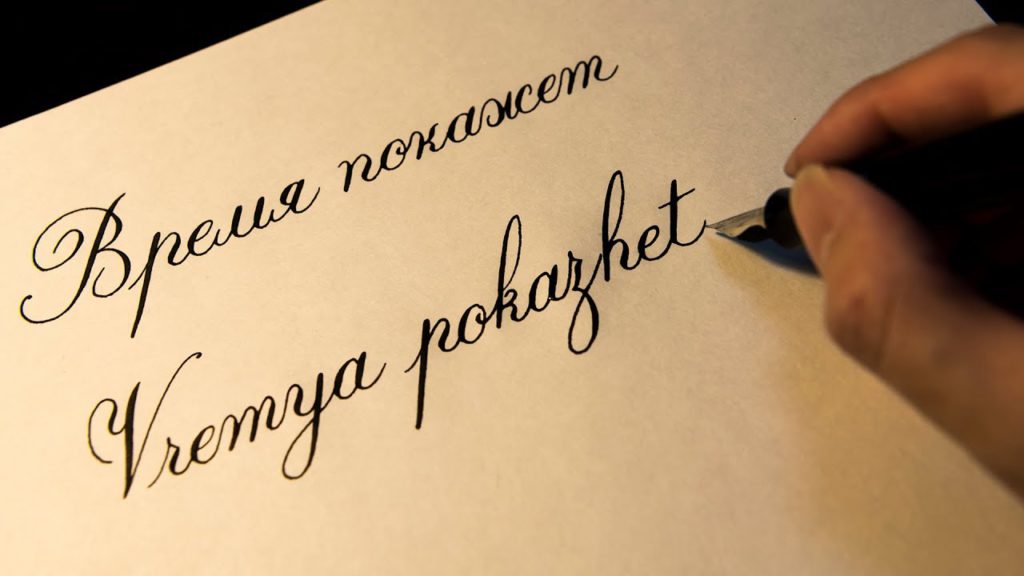 Время покажет
Vremya pokazhet